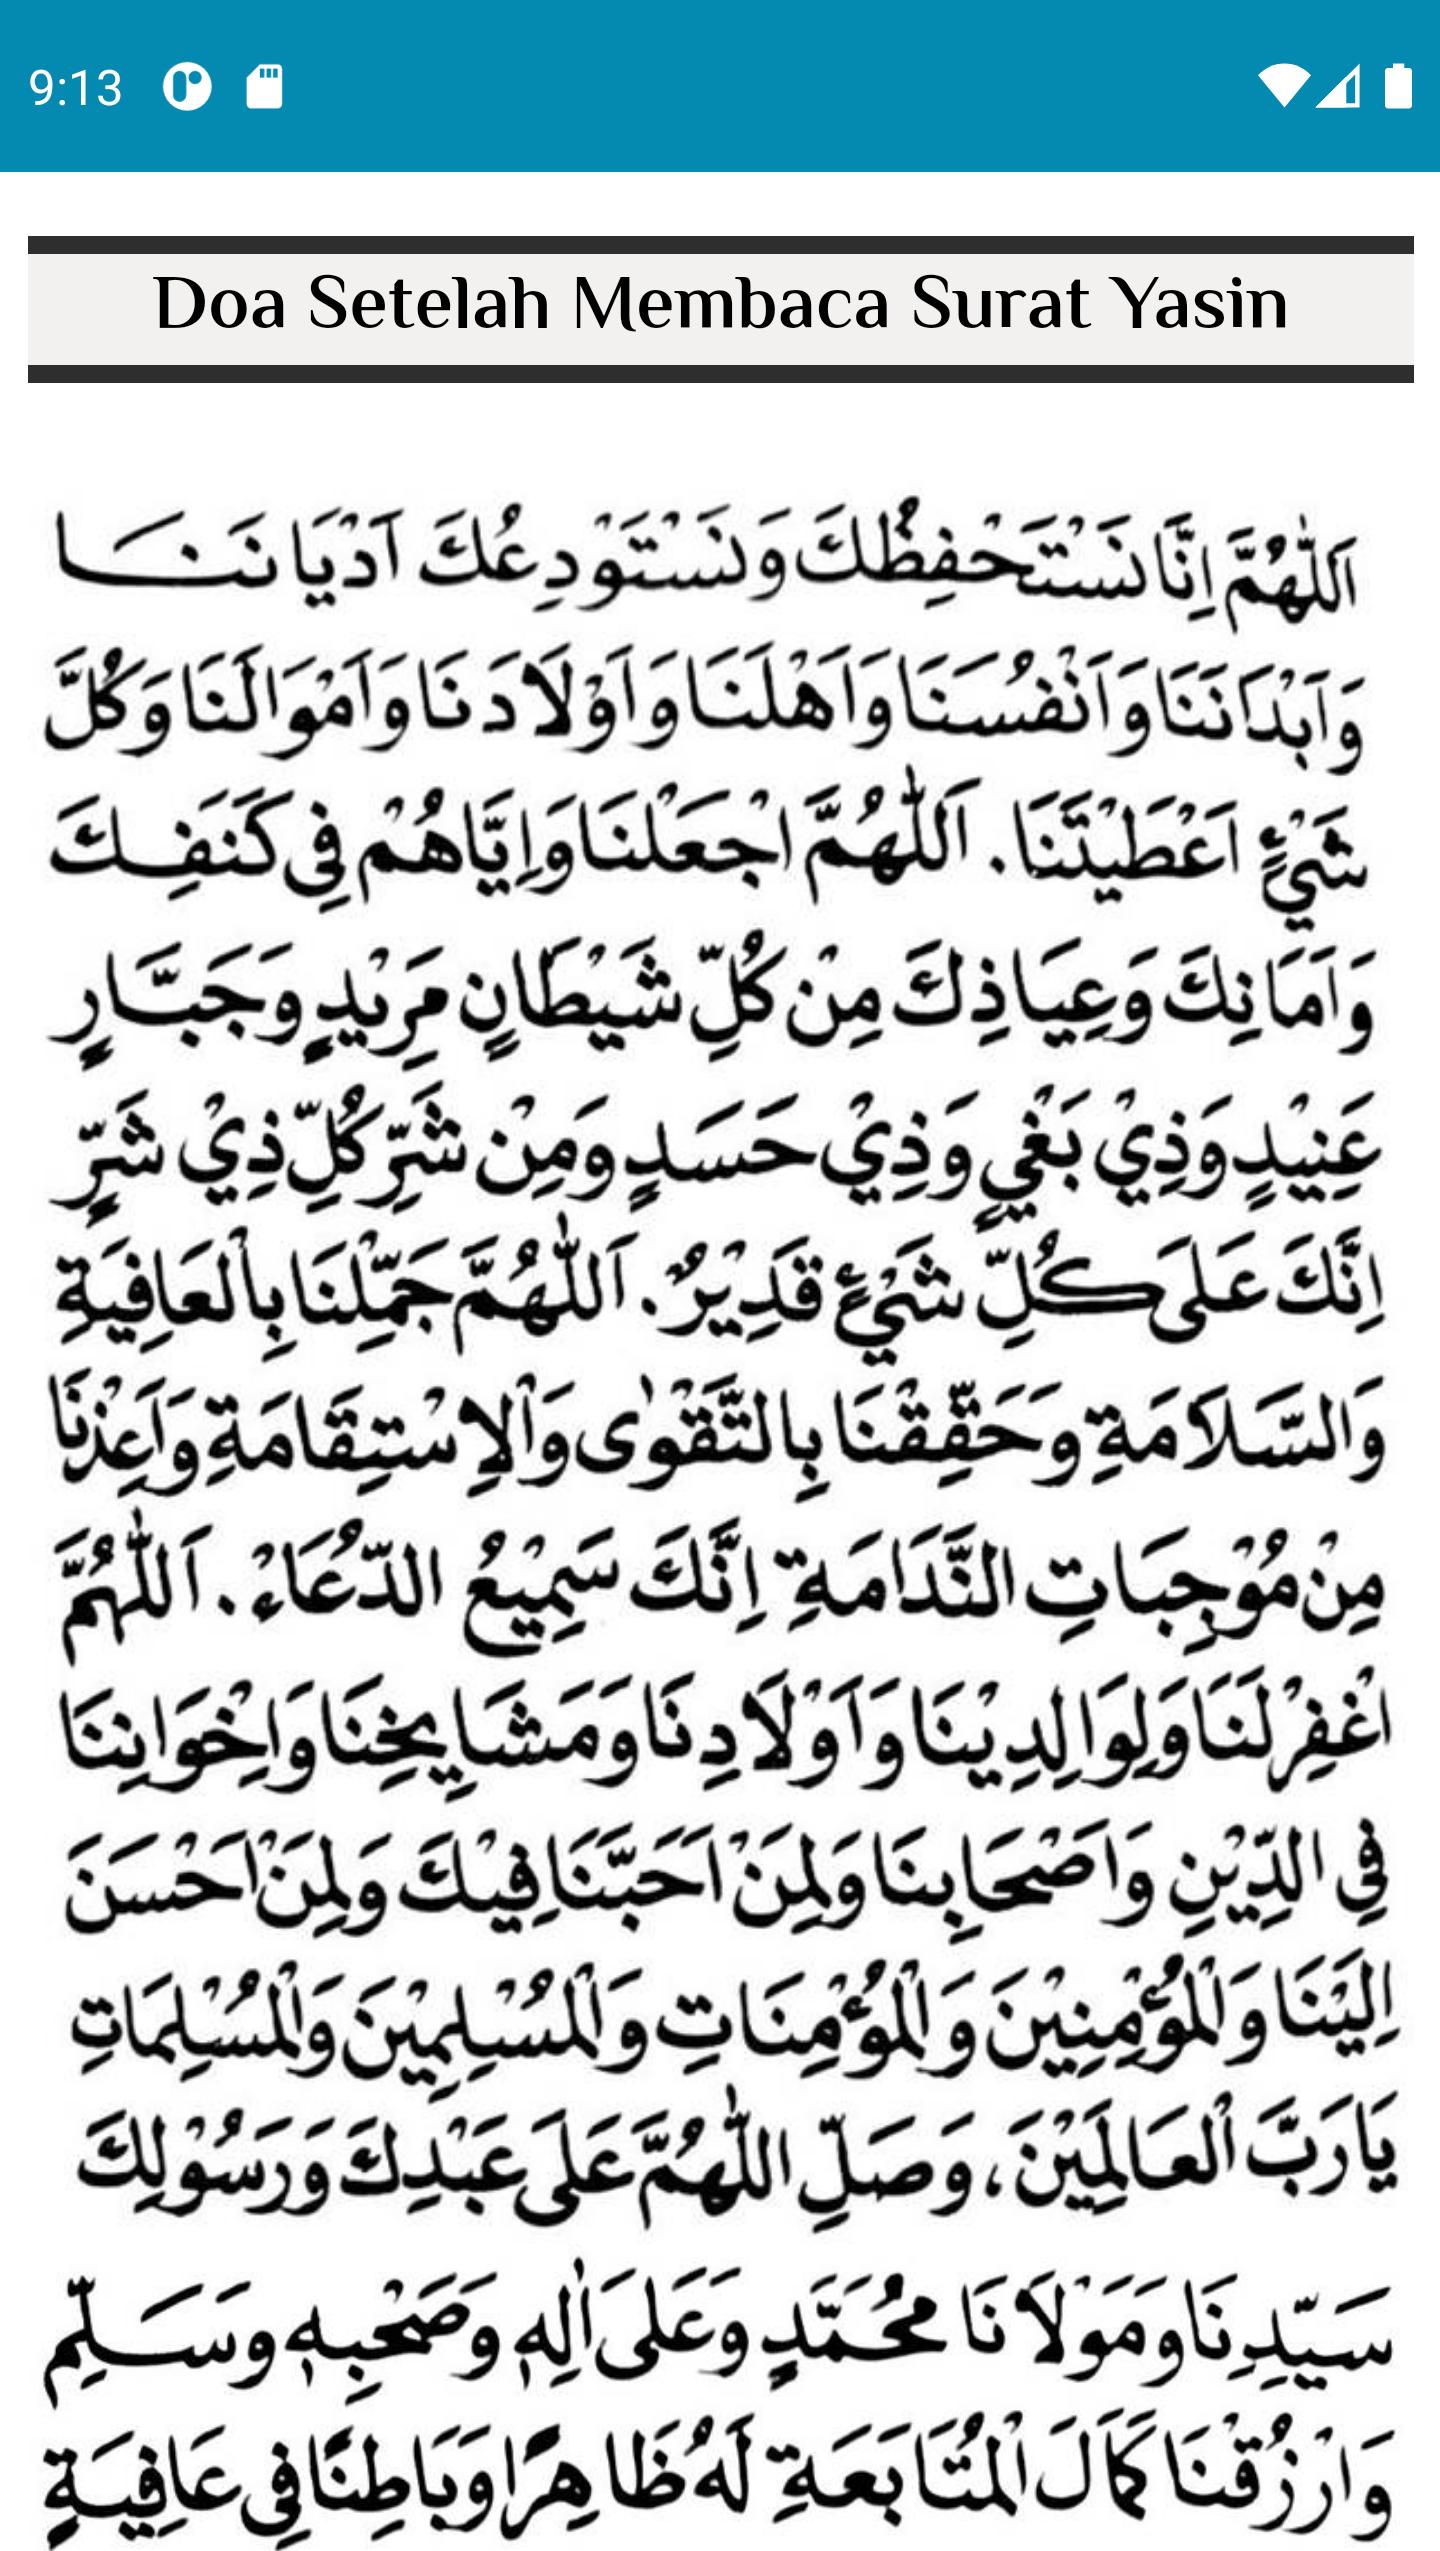 9:13
Doa Setelah Membaca Surat Yasin
اَللّٰهُمَّ اِنَّا نَسْتَحْفِظُكَ وَنَسْتَوْدِعُكَ اَدْيَانَنَا
وَاَبْدَانَنَا وَاَنْفُسَنَا وَاَهْلَنَا وَاَوْلَادَنَا وَاَمْوَالَنَا وَكُلَّ
شَيْءٍ اَعْطَيْتَنَا. اَللّٰهُمَّ اجْعَلْنَا وَاِيَّاهُمْ فِى كَنَفِكَ
وَاَمَانِكَ وَعِيَاذِكَ مِنْ كُلِّ شَيْطَانٍ مَرِيْدٍ وَجَبَّارٍ
عَنِيْدٍ وَذِيْ بَغْيٍ وَذِيْ حَسَدٍ وَمِنْ شَرِّ كُلِّ ذِيْ شَرٍّ
اِنَّكَ عَلَى كُلِّ شَيْءٍ قَدِيْرٌ. اَللّٰهُمَّ جَمِّلْنَا بِالْعَافِيَةِ
وَالسَّلَامَةِ وَحَقِّقْنَا بِالتَّقْوٰى وَالْاِسْتِقَامَةِ وَاَعِذْنَا
مِنْ مُوْجِبَاتِ النَّدَامَةِ اِنَّكَ سَمِيْعُ الدُّعَاءْ. اَللّٰهُمَّ
اغْفِرْلَنَا وَلِوَالِدِيْنَا وَاَوْلَادِنَا وَمَشَايِخِنَا وَاِخْوَانِنَا
فِى الدِّيْنِ وَاَصْحَابِنَا وَلِمَنْ اَحَبَّنَا فِيْكَ وَلِمَنْ اَحْسَنَ
اِلَيْنَا وَالْمُؤْمِنِيْنَ وَالْمُؤْمِنَاتِ وَالْمُسْلِمِيْنَ وَالْمُسْلِمَاتِ
يَارَبَّ الْعَالَمِيْنَ، وَصَلِّ اللّٰهُمَّ عَلَى عَبْدِكَ وَرَسُوْلِكَ
سَيِّدِنَا وَمَوْلَانَا مُحَمَّدٍ وَعَلَى اٰلِهٖ وَصَحْبِهٖ وَسَلِّمْ
وَارْزُقْنَا كَمَالَ الْمُتَابَعَةِ لَهُ ظَاهِرًا وَبَاطِنًا فِى عَافِيَةٍ